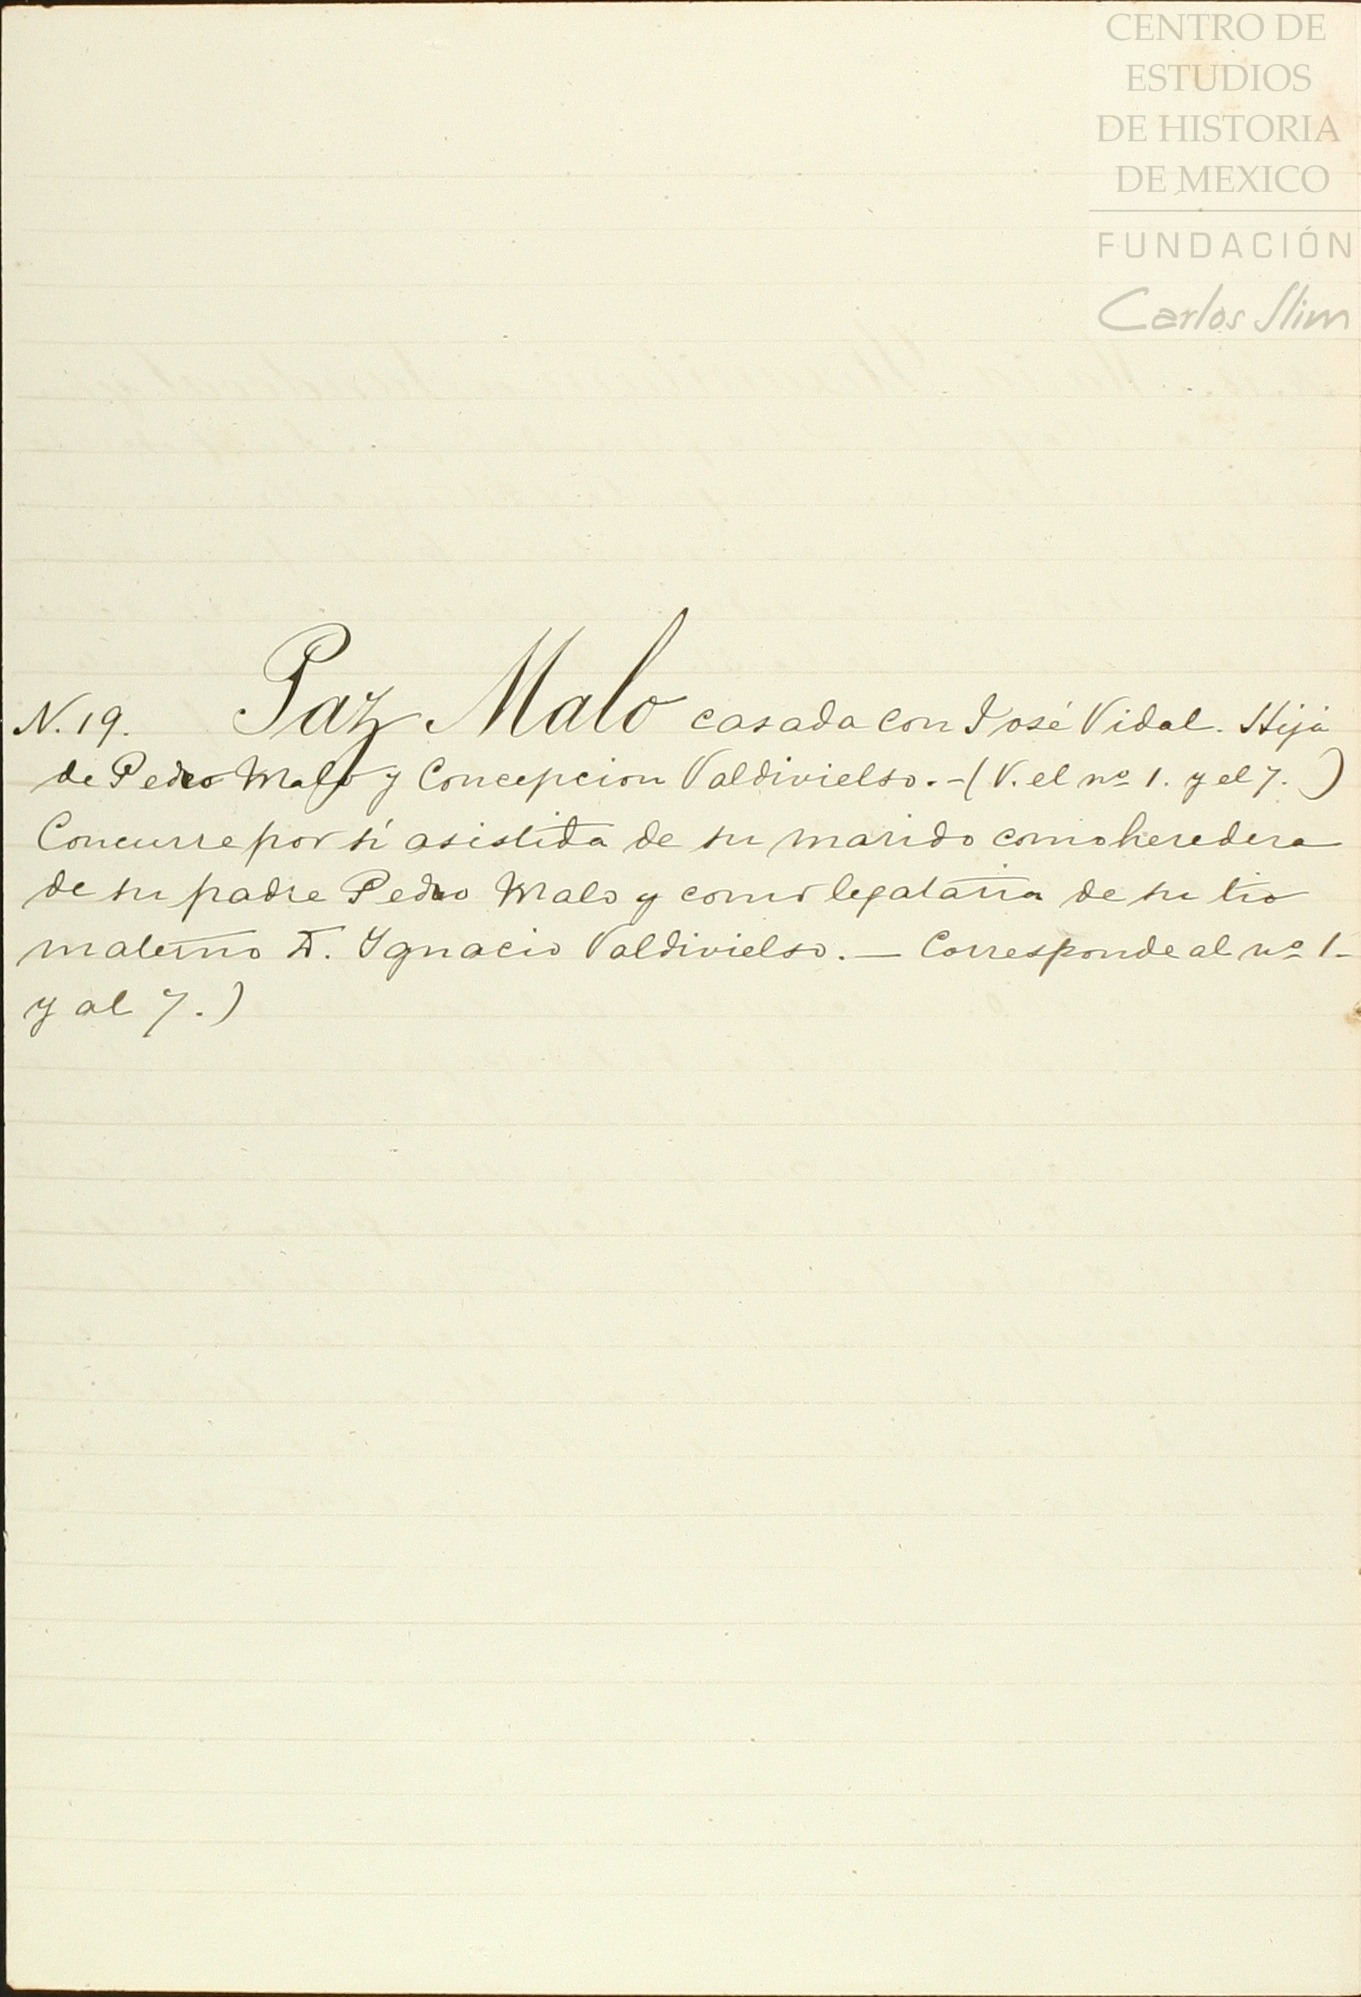 CENTRO DE
ESTUDIOS
DE HISTORIA
DE MEXICO
FUNDACIÓN
Carlos Slim
N. 19. Paz Malo casada con José Vidal. Hija
de Pedro Malo y Concepcion Valdivielso. - (V. el nº 1. y el 7. )
Concurre por sí asistida de su marido como heredera
de su padre Pedro Malo y como legataria de su tio
materno D. Ygnacio Valdivielso. — Corresponde al nº 1-
y al 7. )